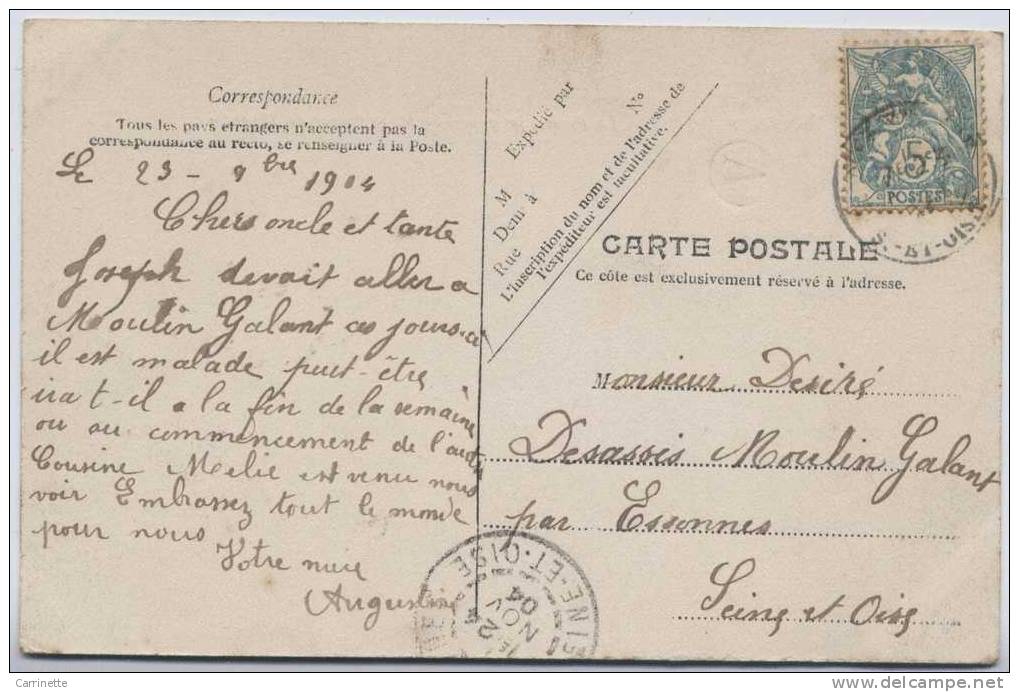 Correspondance
Tous les pays etrangers n'acceptent pas la
correspondance au recto, se renseigner à la Poste.
Le 23 - 9bre 1904
Chers oncle et tante
Joseph devait aller a
Moulin Galant ces jours-ci
il est malade peut-être
ira t-il a la fin de la semaine
ou au commencement de l'autre
Cousine Melie est venu nous
voir Embrassez tout le monde
pour nous
Votre niece
Augustine
Expédié par
M
Dem à
Rue
No
L'inscription du nom et de l'adresse de
l'expéditeur est facultative.
5
POSTES
ET-OISE
CARTE POSTALE
Ce côte est exclusivement réservé à l'adresse.
Monsieur Desiré
Desassis Moulin Galant
par Essonnes
Seine et Oise
NE-ET-OISE
24
NOV
04
Carrinette
delcampe.net